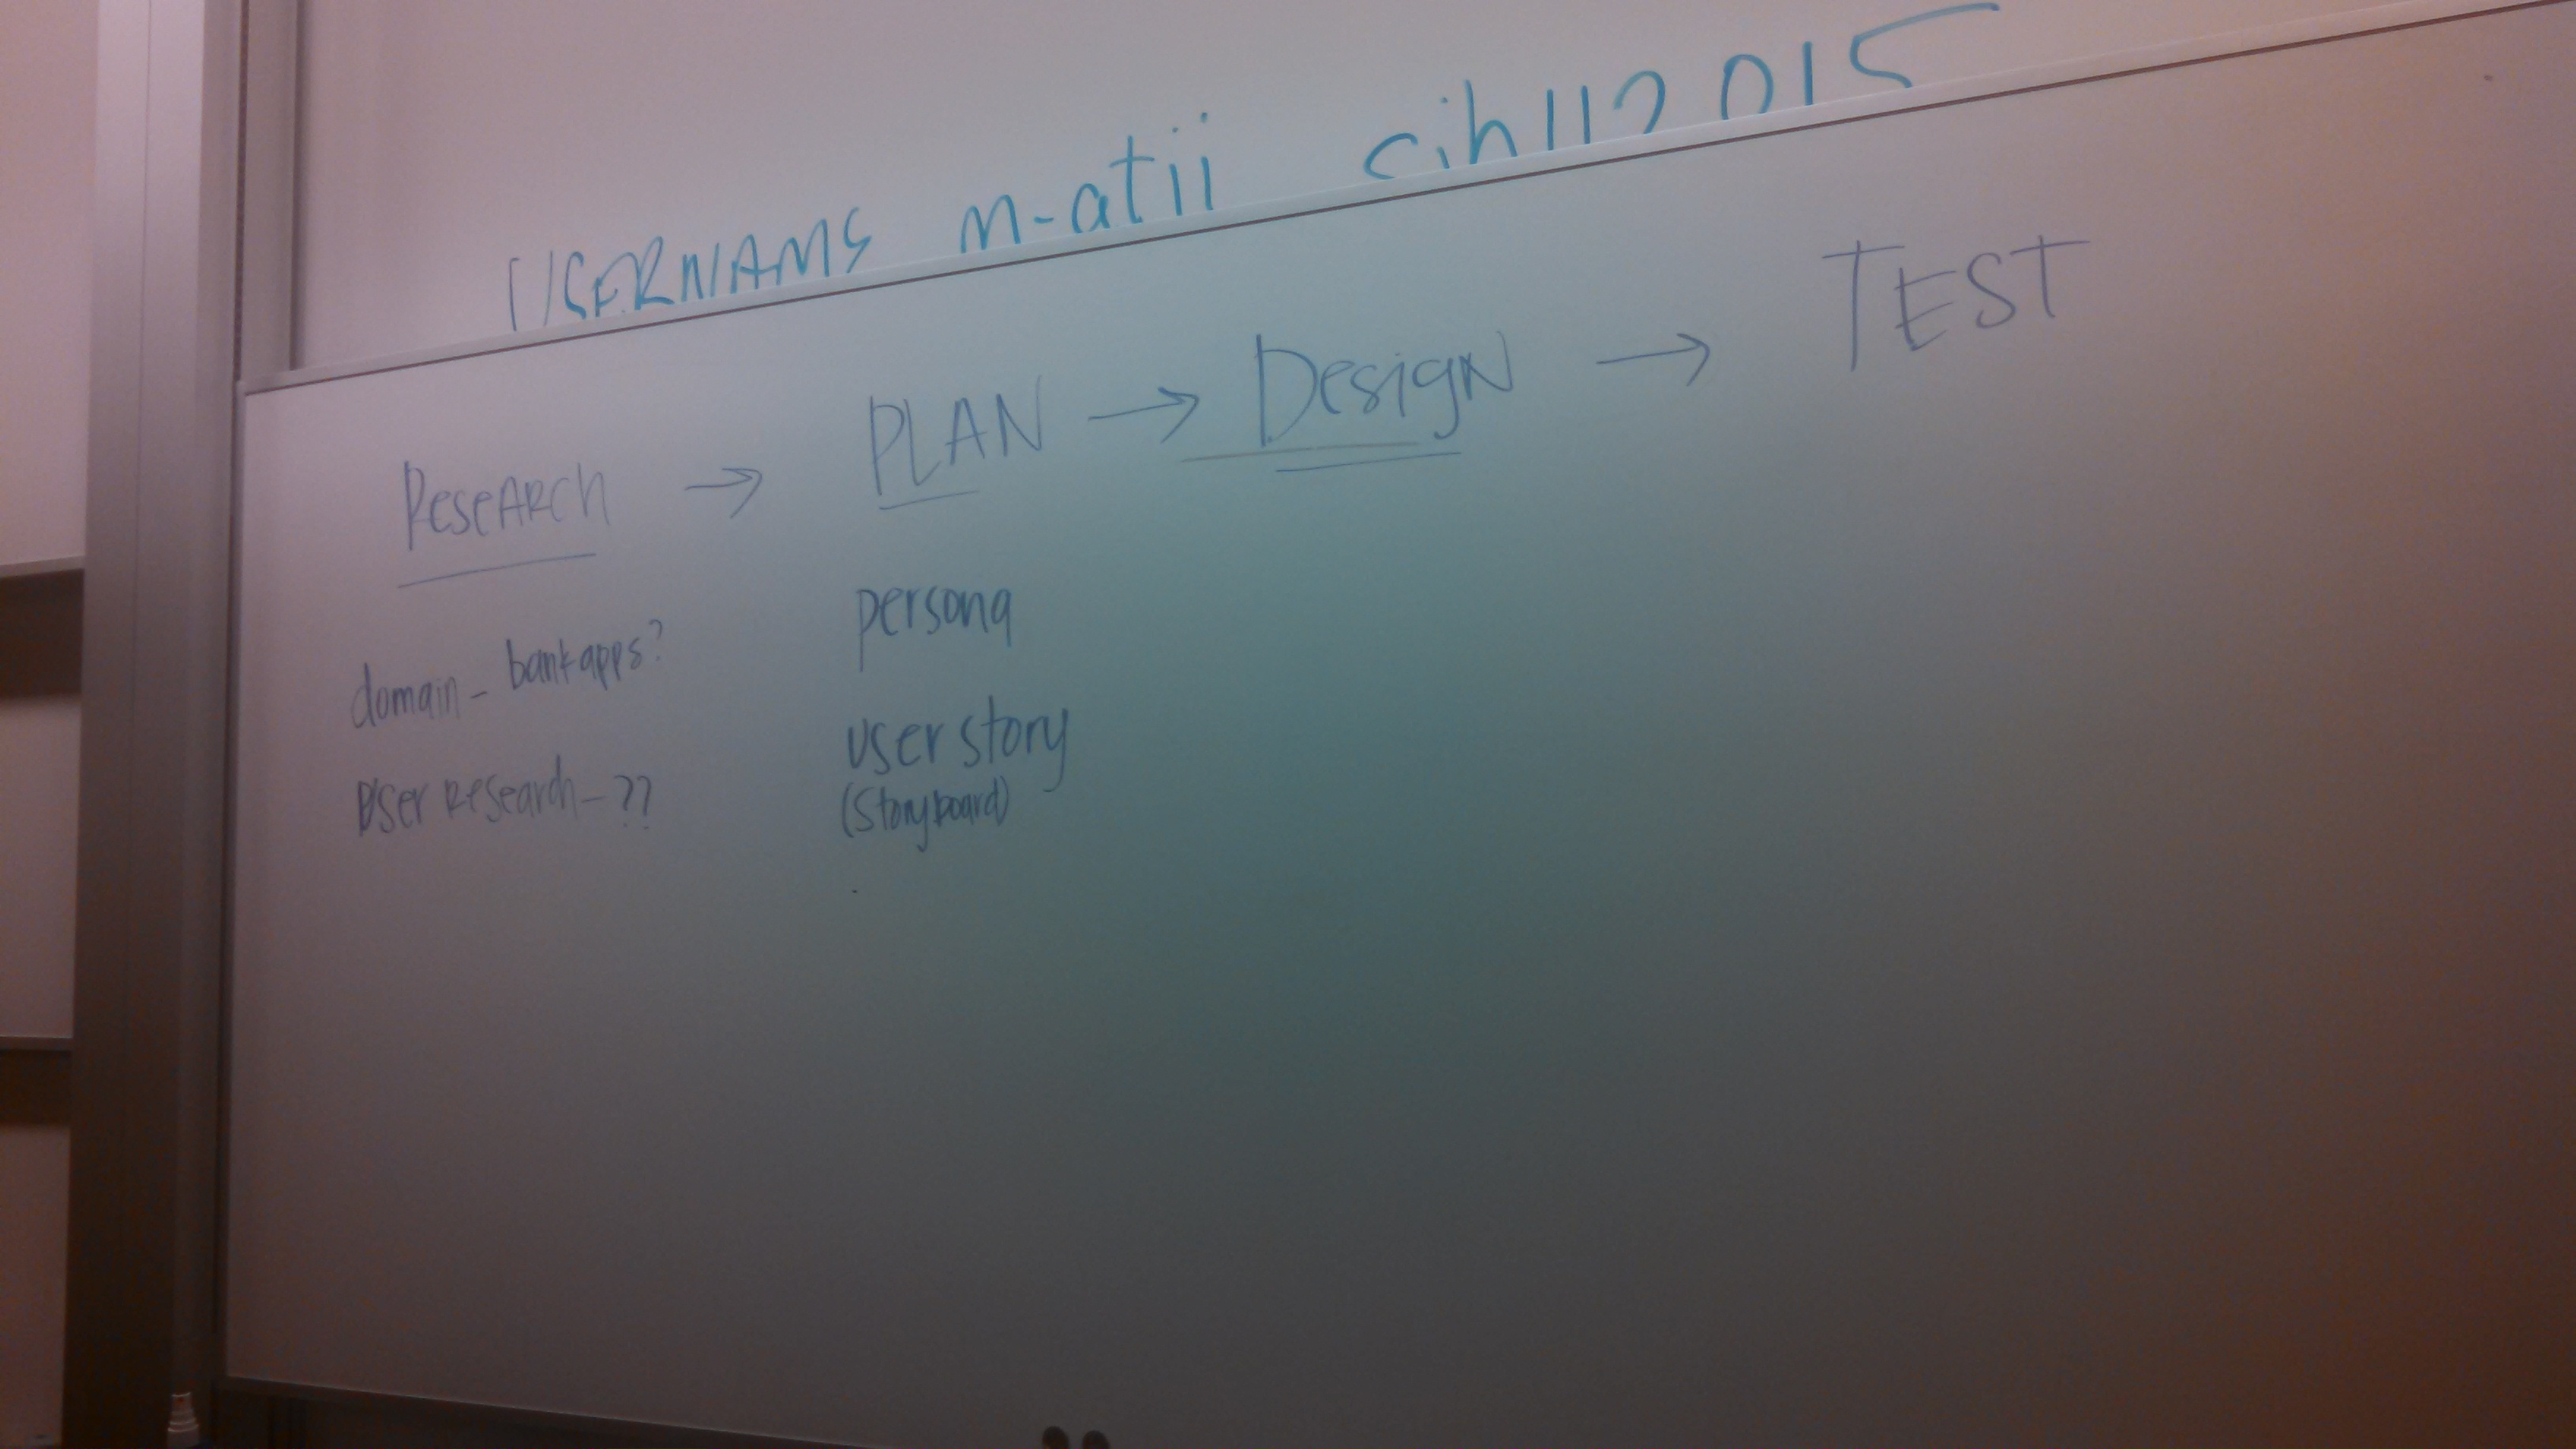 USERNAMS m-atii cih112015
Research → PLAN → Design → TEST
domain - bank apps?
User Research - ??
persona
user story
(Storyboard)